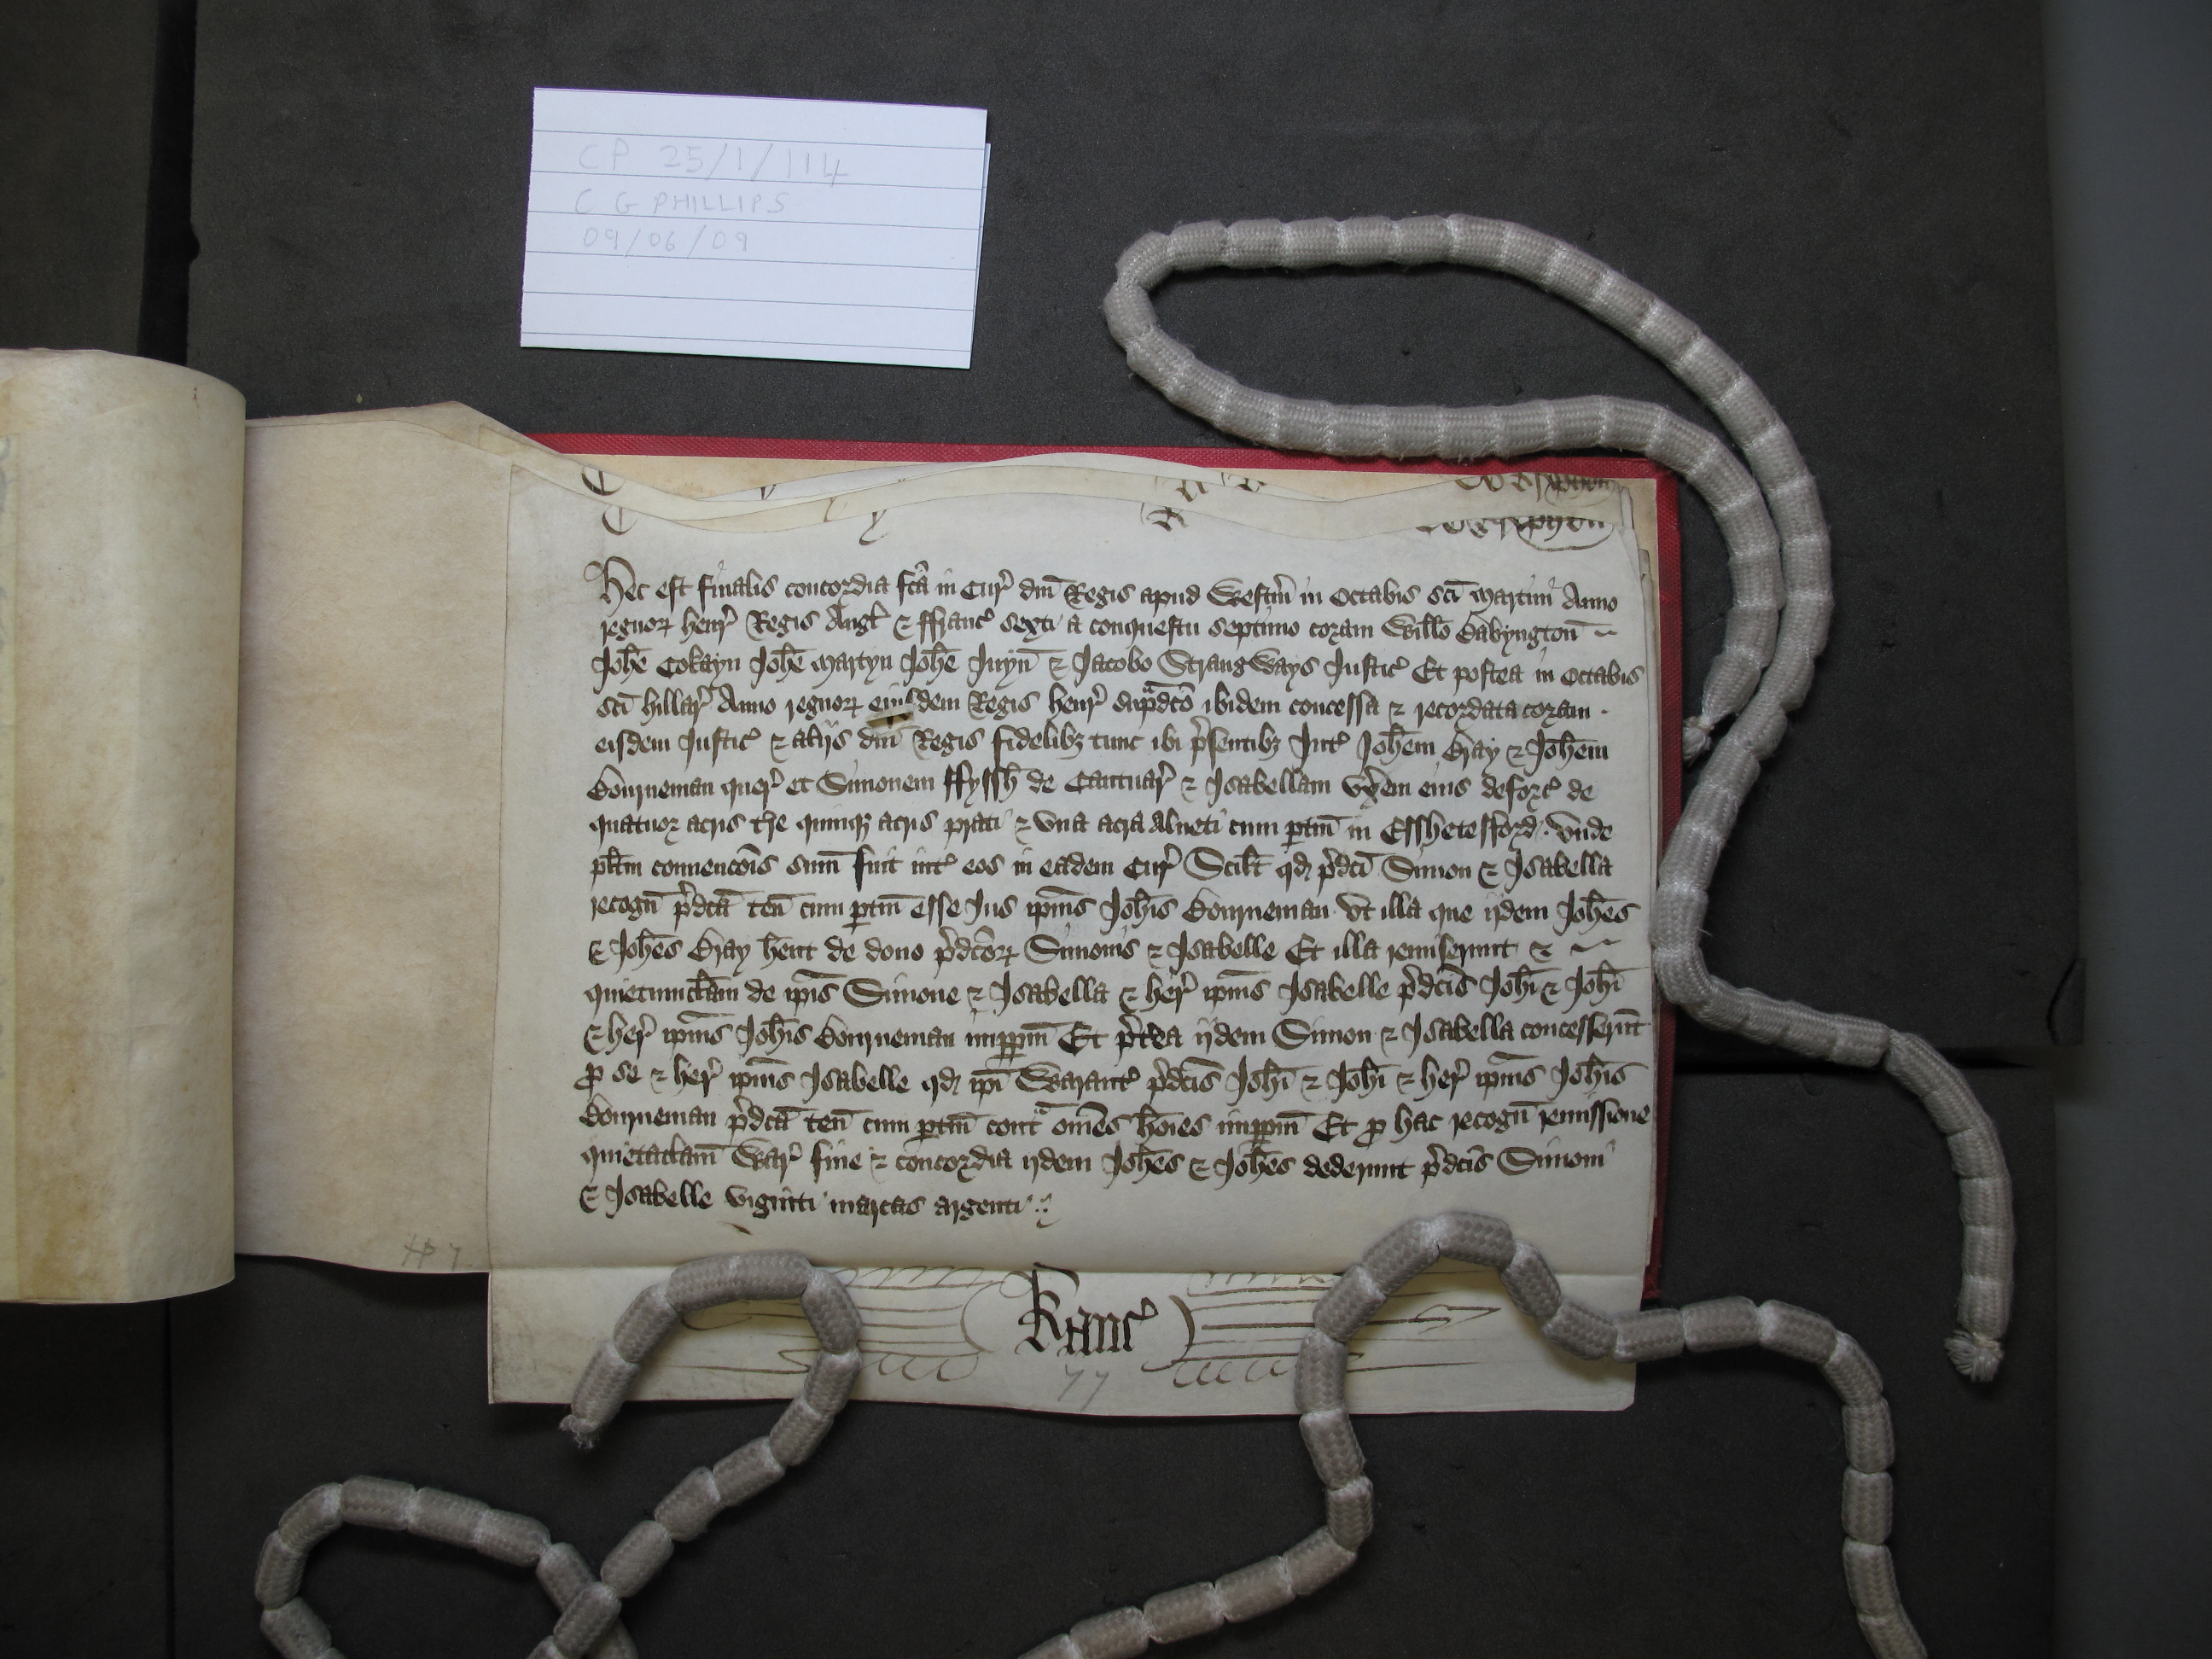 CP 25/1/114
C G PHILLIPS
09/06/09
Hec est finalis concordia fcā in Cur' dnī Regis apud Westm̄ in Octabis scī Martini Anno
regnor' henr' Regis Angl' & ffranc' sexti a conquestu septimo coram Will̄o Babyngton̄
Joh̄e Cokayn Joh̄e Martyn Joh̄e Juyn̄ & Jacobo Strangways Justic' Et postea in Octabis
scī hillar' Anno regnor' eiusdem Regis henr' sup̄dcō ibidem concessa & recordata coram
eisdem Justic' & alijs dnī Regis fidelibȝ tunc ibi p'sentibȝ Int' Joh̄em Bray & Joh̄em
Bourneman quer' et Simonem ffyssh̄ de Cantuar' & Isabellam vx̄em eius deforc' de
quatuor acris t̄re quinqȝ acris prati & vna acra Alneti cum ptin̄ in Esshetesford vnde
pl̄itm conuencōis sum̄ fuit int' eos in eadem Cur' Scil̄t qd p'dcī Simon & Isabella
recogn̄ p'dcā ten̄ cum ptin̄ esse Jus ipīus Joh̄is Bourneman vt illa que ijdem Joh̄es
& Joh̄es Bray h̄ent de dono p'dcōr' Simonis & Isabelle Et illa remiserunt &
quietumcl̄am de ip̄is Simone & Isabella & her' ipīus Isabelle p'dcīs Joh̄i & Joh̄i
& her' ipīus Joh̄is Bourneman imppm̄ Et p't'ea ijdem Simon & Isabella concesserūt
p se & her' ipīus Isabelle qd ip̄i Warant' p'dcīs Joh̄i & Joh̄i & her' ipīus Joh̄is
Bourneman p'dcā ten̄ cum ptin̄ cont̄ om̄es ho̅ies imppm̄ Et p hac recogn̄ remissione
quietacl̄am̄ War' fine & concordia ijdem Joh̄es & Joh̄es dederunt p'dcīs Simoni
& Isabelle viginti marcas argenti
Kanc'
77